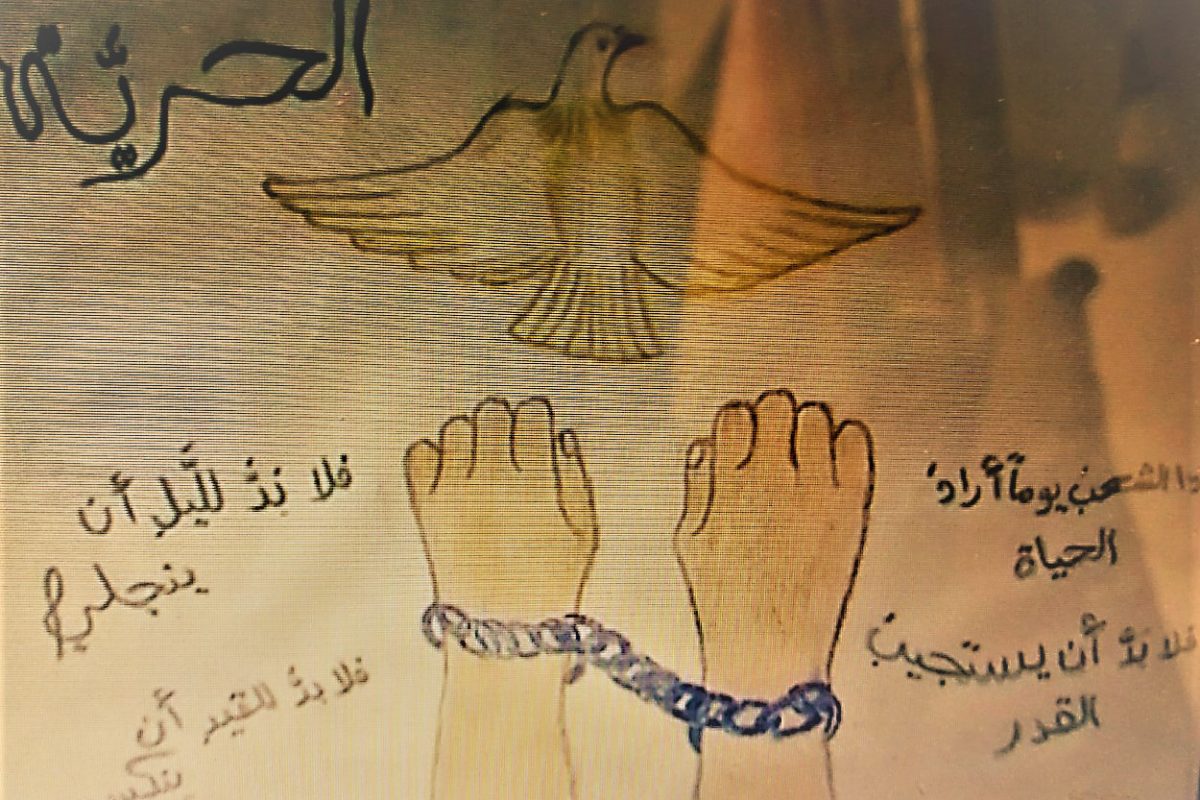 الحريَّة
الشعبُ يوماً أرادَ
الحياة
فلا بدَّ أن يستجيبَ
القدر
فلا بُدَّ للَّيلِ أن
ينجلي
فلا بدَّ للقيد أن